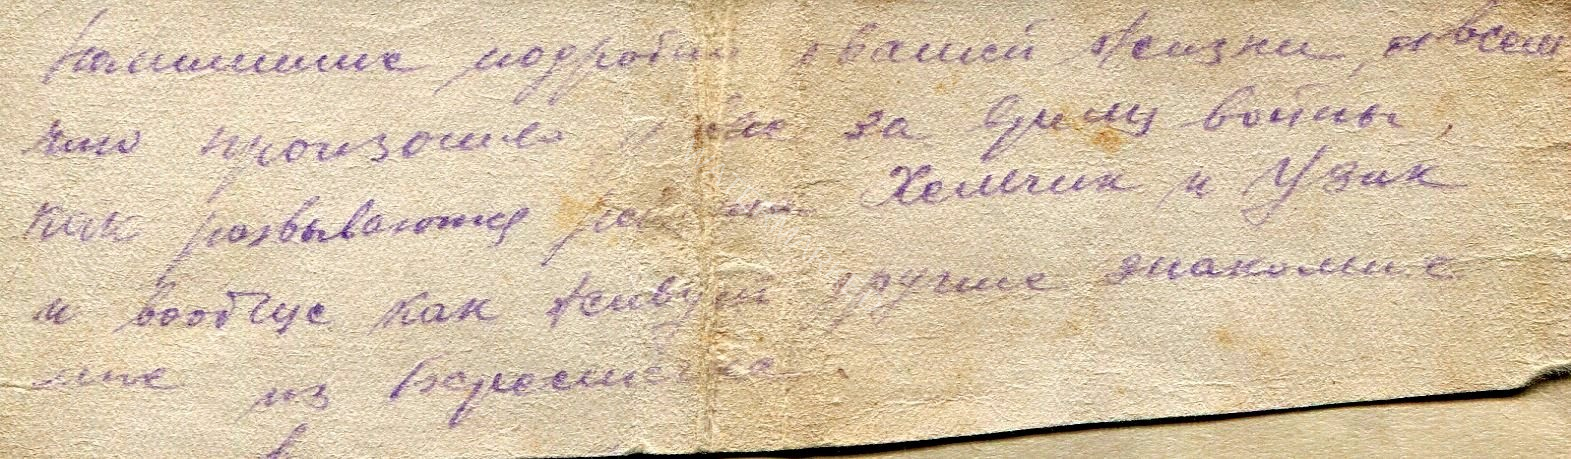 Напишите подробно о вашей жизни, о всем
что произошло у вас за время войны,
как развиваются ребята Хемчик и Узик
и вообще как живут другие знакомые
мне из Берестечка.